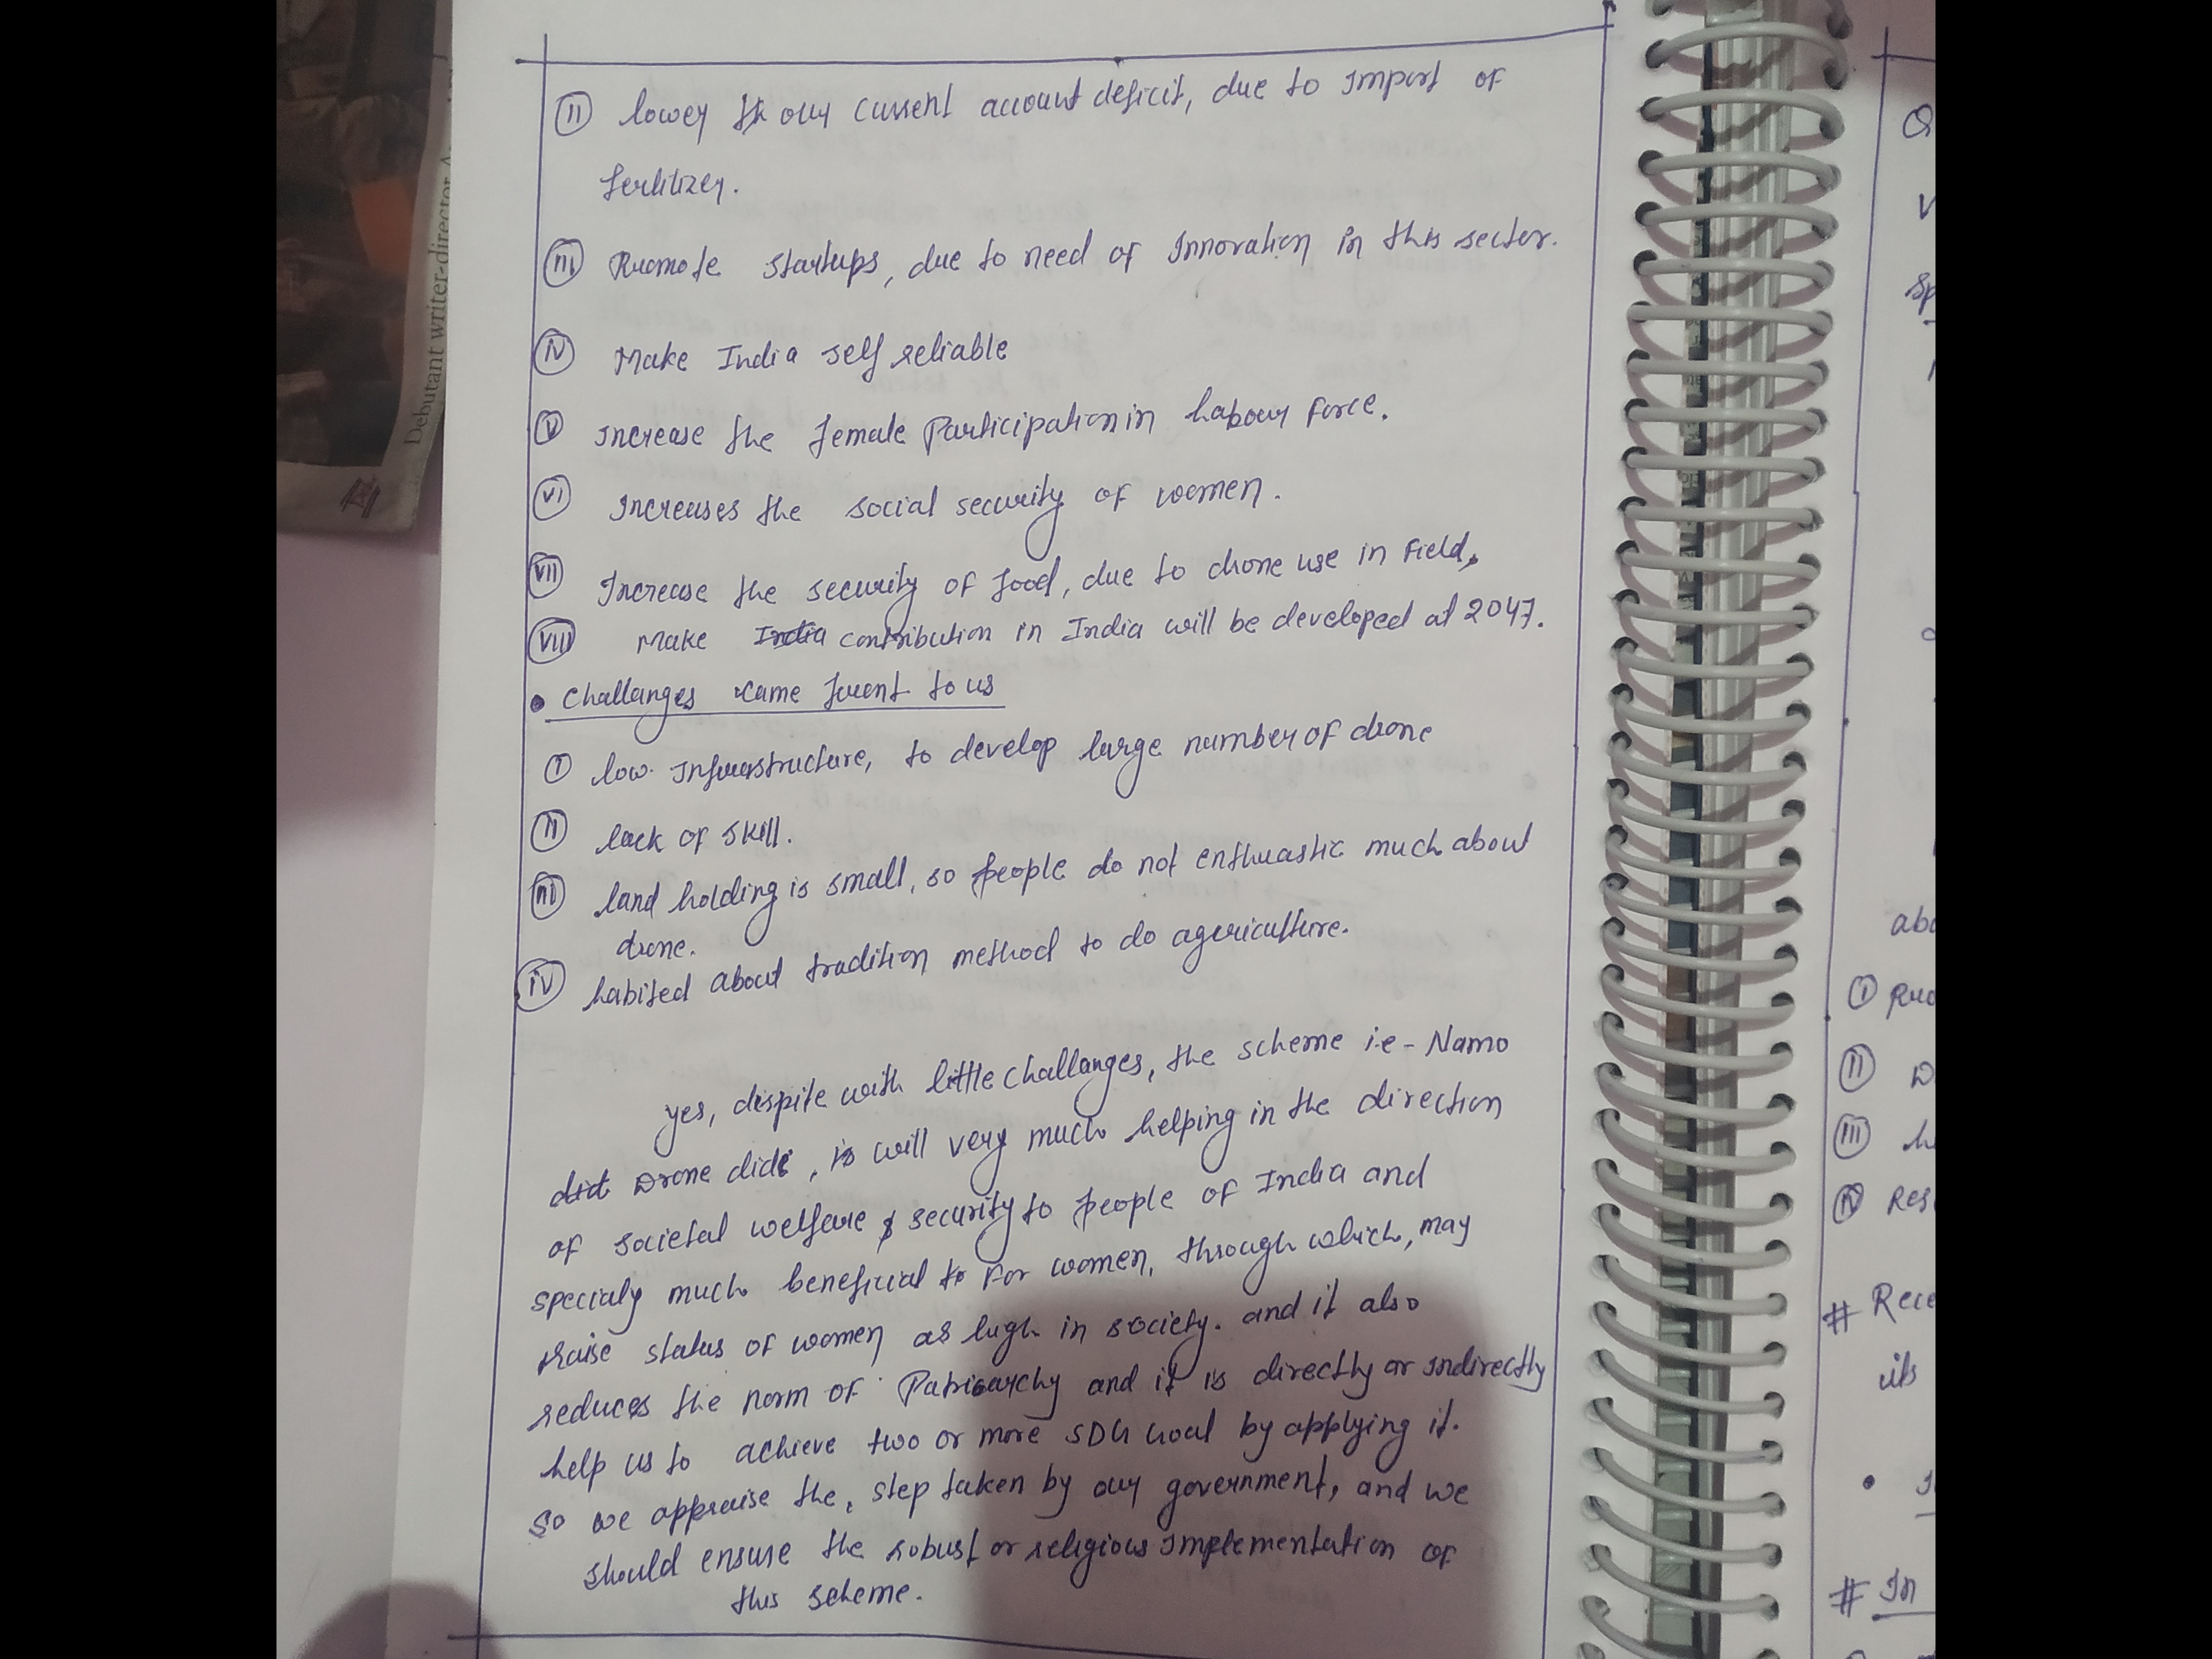 Debutant writer-director
(II) lower th our current account deficit, due to Import of
fertilizer.
(III) Promote startups, due to need of Innovation in this sector.
(IV) Make India self reliable
(V) Increase the female Participation in labour force.
(VI) Increases the social security of women.
(VII) Increase the security of food, due to drone use in field,
(VIII) Make India contribution in India will be developed at 2047.
• Challanges came front to us
(I) low Infrastructure, to develop large number of drone
(II) lack of skill.
(III) land holding is small, so people do not enthuastic much about
drone.
(IV) habited about tradition method to do agericulture.
yes, dispite with little challanges, the scheme i.e - Namo
did Drone didi, is will very much helping in the direction
of societal welfare & security to people of India and
specialy much beneficial to for women, through which, may
raise status of women as high in society. and it also
reduces the norm of Patriarchy and it is directly or indirectly
help us to achieve two or more SDG Goal by applying it.
So we appraise the, step taken by our government, and we
should ensure the robust or religious implementation of
this scheme.
Q
V
Sp
abo
(I)
(II) D
(III) h
(IV) Res
# Rece
its
•
# In